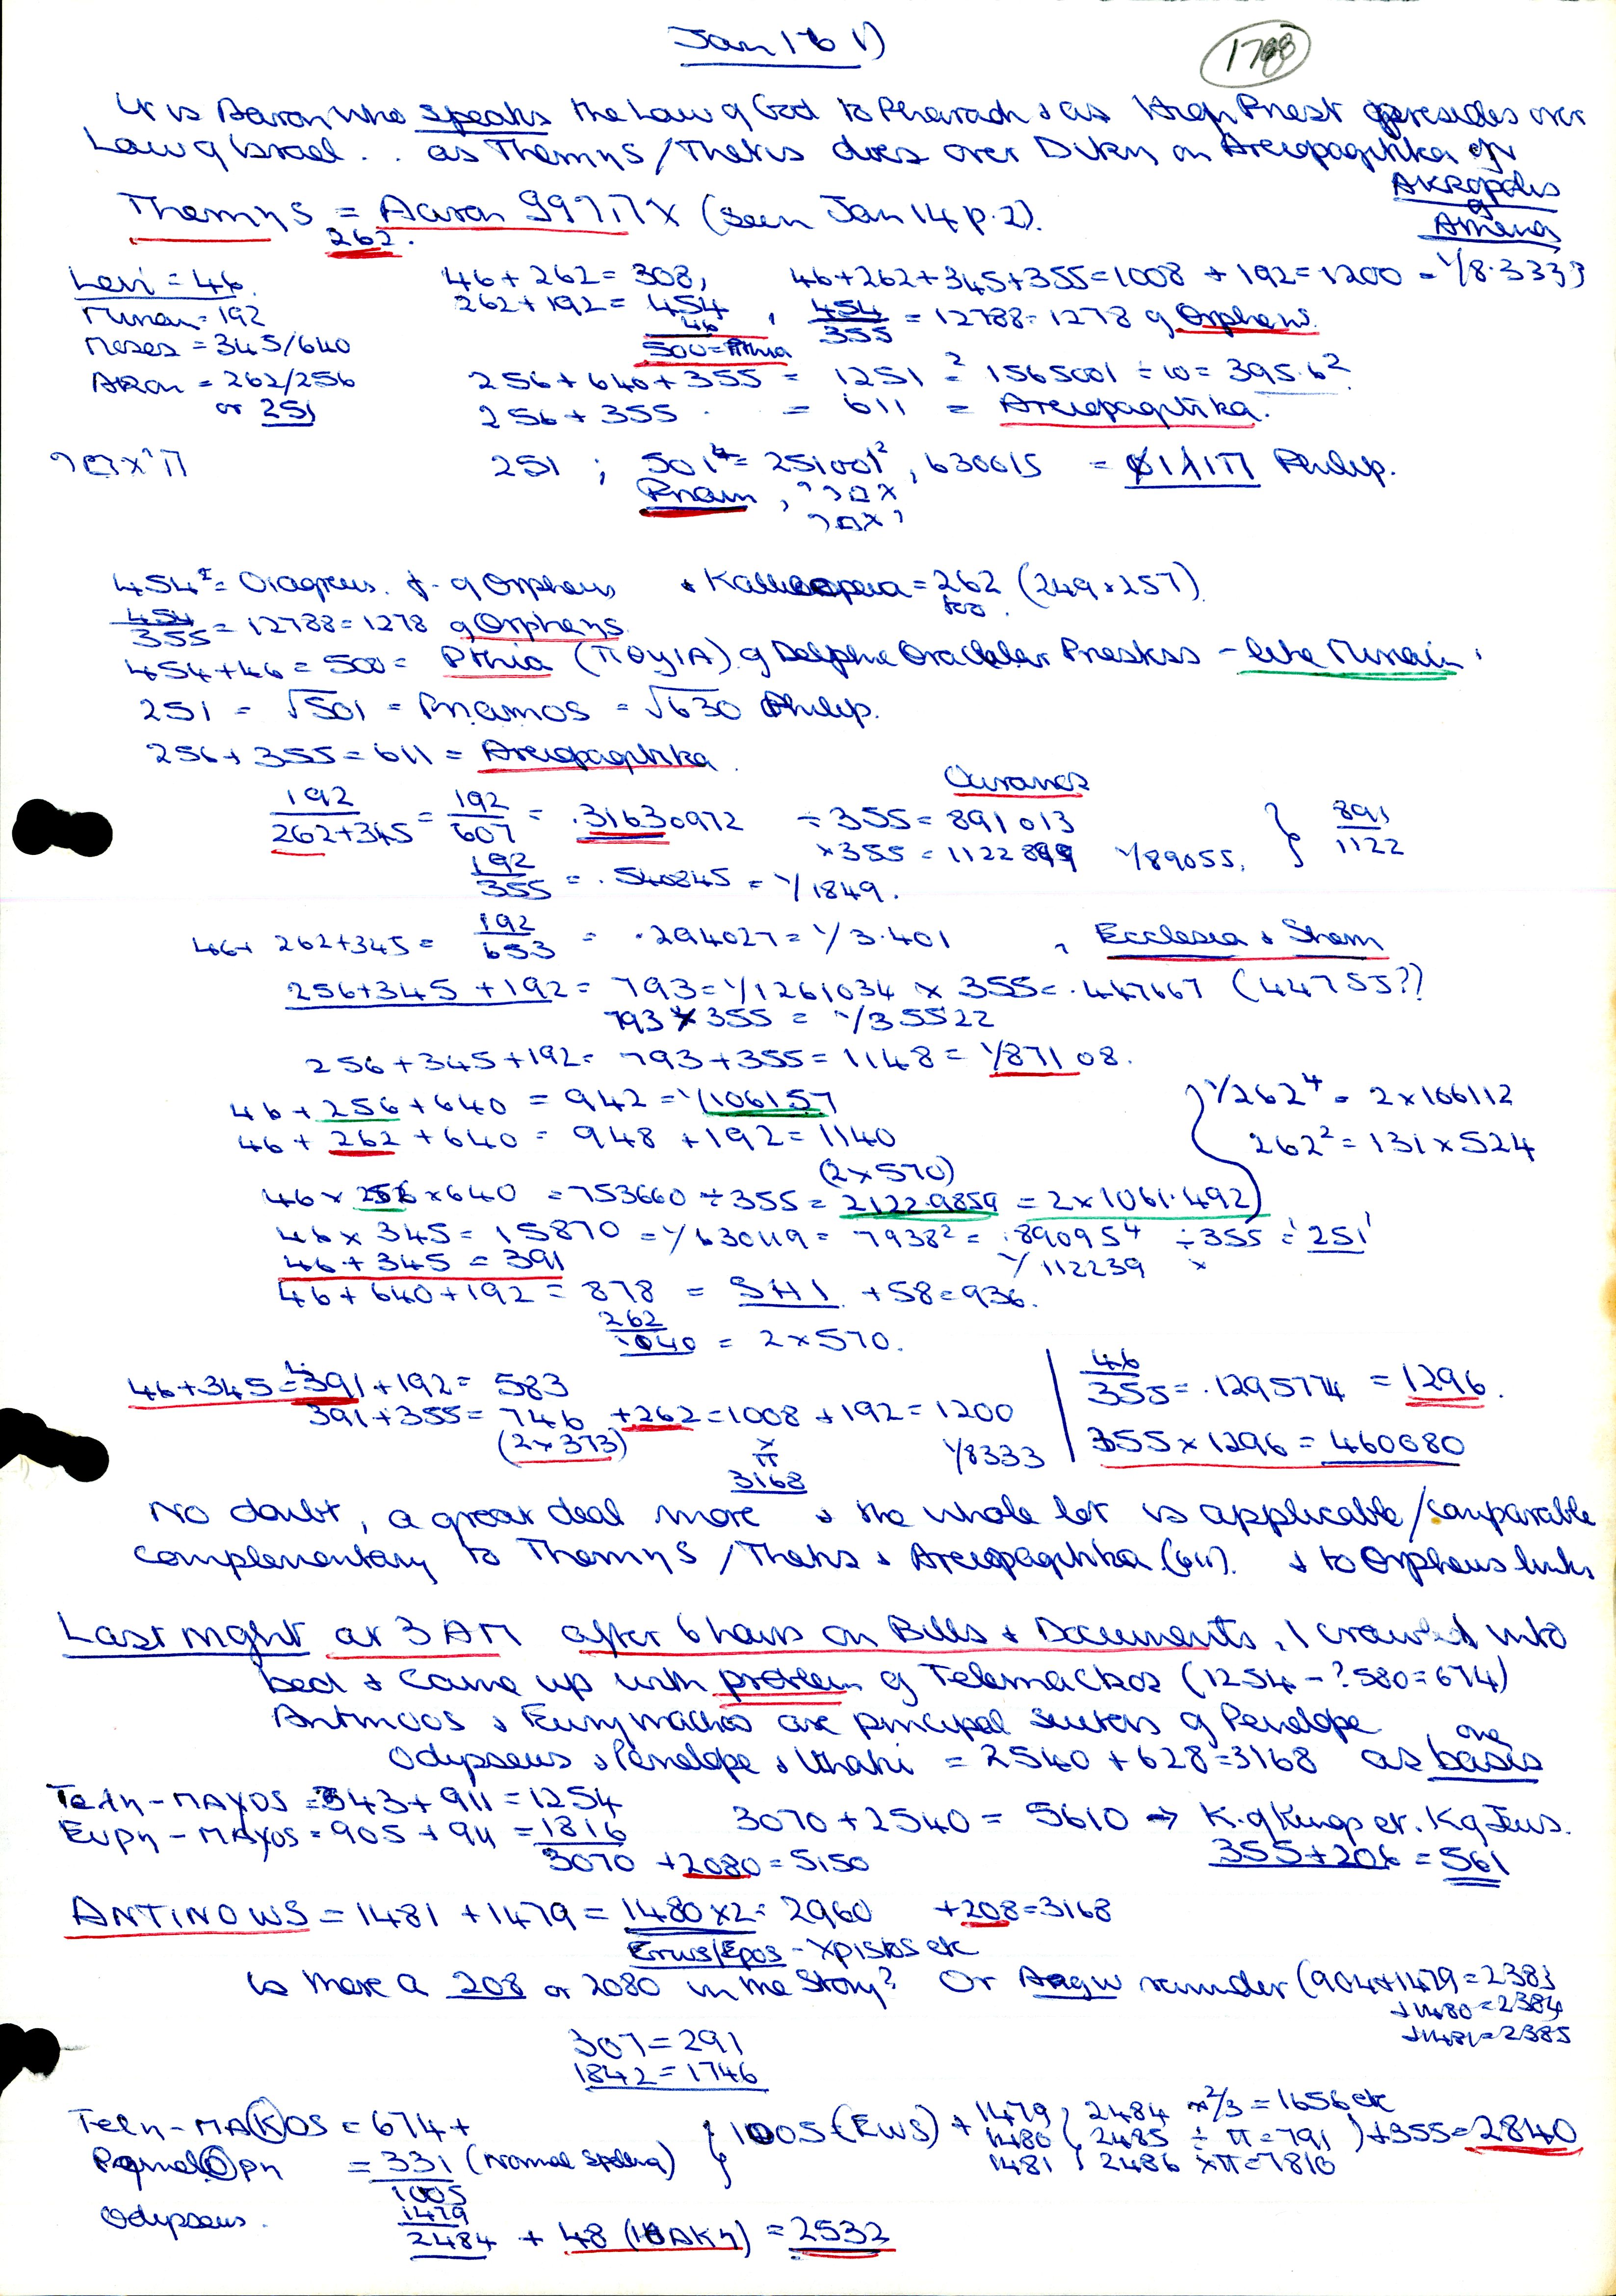 Jan 16 1)
1788
It is Aaron who speaks the Law of God to Pharaoh & as High Priest presides over
Law of Israel . . as Themys / Thetis does over Diken on Areiopagitika of
AKROPOLIS
of
Athena
Themys = Aaron 997ΠX (seen Jan 14 p.2).
262.
Levi = 46.
46 + 262 = 308,
46+262+345+355=1008 + 192=1200 = 1/8.3333
Miriam = 192
262+192 = 454
454/355 = 12788 = 1278 of Orpheus.
46
Moses = 345/640
500 = Pithia
Aaron = 262/256
256 + 640 + 355 = 1251 = 2 1565001 ÷ 10 = 395.6²
or 251
256 + 355 = 611 = Areiopagitika.
251 ; 501⁴ = 251001², 630015 = Philip.
Priam,
454² = Oiagreus. f. of Orpheus & Kalleopeia = 262 (249 & 257)
too.
454/355 = 12788 = 1278 of Orpheus
454+46 = 500 = Pithia (ΠΘYIA) of Delphi Oracular Priestess - like Miriam.
251 = √501 = Priamos = √630 Philip.
256 + 355 = 611 = Areiopagitika.
Ouranos
192/262+345 = 192/607 = .31630972 ÷ 355 = 891013 } 891/1122
× 355 = 1122899 1/89055.
192/355 = .540845 = 1/1849.
46 + 262+345 = 192/653 = .294027 = 1/3.401 , Ecclesia & Shem
256+345 + 192 = 793 = 1/1261034 × 355 = .447667 (44755??)
793 × 355 = 1/35522
256 + 345 + 192 = 793 + 355 = 1148 = 1/87108.
46 + 256 + 640 = 942 = 1/106157
1/262⁴ = 2 × 106112
46 + 262 + 640 = 948 + 192 = 1140
262² = 131 × 524
(2×570)
46 × 256 × 640 = 753660 ÷ 355 = 2122.9859 = 2 × 1061.492)
46 × 345 = 15870 = 1/630119 = 7938² = .890954 ÷ 355 = 251
1/112239 ×
46 + 345 = 391
46 + 640 + 192 = 878 = SHI + 58 = 936.
262
1040 = 2 × 570.
46+345 = 391 + 192 = 583
46/355 = .1295774 = 1296.
391 + 355 = 746 + 262 = 1008 + 192 = 1200
(2×373)
×
π
3168
1/8333
355 × 1296 = 460080
No doubt, a great deal more & the whole lot is applicable / comparable
complementary to Themys / Thetis & Areiopagitika (611). & to Orpheus links
Last night at 3 AM after 6 hours on Bills & Documents, I crawled into
bed & came up with problem of Telemackos (1254 - ? 580 = 674)
Antinoos & Eurymachos are principal suitors of Penelope
Odysseus & Penelope & Ithaki = 2540 + 628 = 3168 as one basis
Teλη - MAXOS = 343 + 911 = 1254
Eυρη - MAXOS = 905 + 911 = 1816
3070 + 2540 = 5610 → K. of Kings et. K of Jews.
3070 + 2080 = 5150
355 + 206 = 561
ANTINOWS = 1481 + 1479 = 1480×2 = 2960 + 208 = 3168
Erws/Epos - Xpistos etc
Is there a 208 or 2080 in the Story? Or Argw reminder (904+1479 = 2383
+1480 = 2384
+1481 = 2385
307 = 291
1842 = 1746
Teλη - MA(K)OS = 674 +
Penelopη = 331 (normal spelling)
1005
} 1005 (EWS) + 1479, 2484 × 2/3 = 1656 etc
1480 ( 2485 ÷ π = 791 ) + 355 = 2840
1481, 2486 × π = 7810
Odysseus.
1479
2484 + 48 (IΘAKη) = 2532